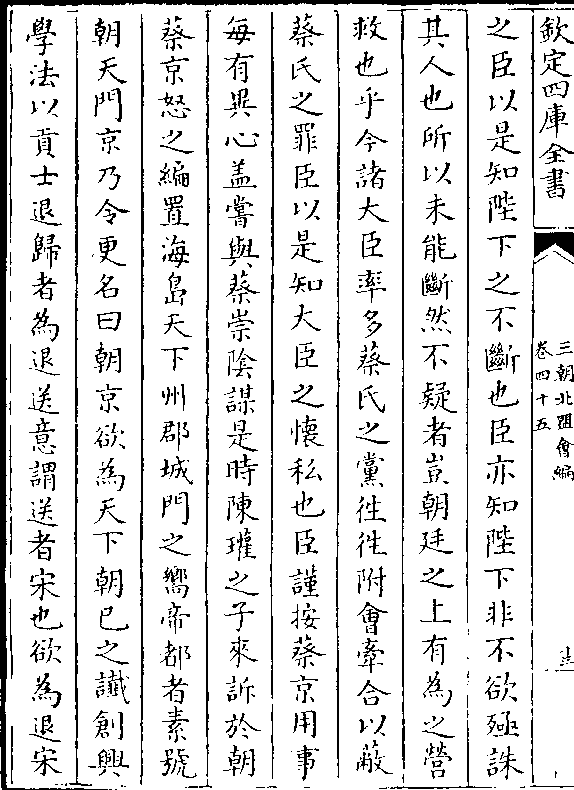 欽定四庫全書
三朝北盟會編
卷四十五
之臣以是知陛下之不斷也臣亦知陛下非不欲殛誅
其人也所以未能斷然不疑者豈朝廷之上有為之營
救也乎今諸大臣率多蔡氏之黨徃徃附會牽合以蔽
蔡氏之罪臣以是知大臣之懷私也臣謹按蔡京用事
每有異心盖嘗與蔡崇陰謀是時陳瓘之子來訴於朝
蔡京怒之編置海島天下州郡城門之嚮帝都者素號
朝天門京乃令更名曰朝京欲為天下朝已之讖創興
學法以貢士退歸者為退送意謂送者宋也欲為退宋